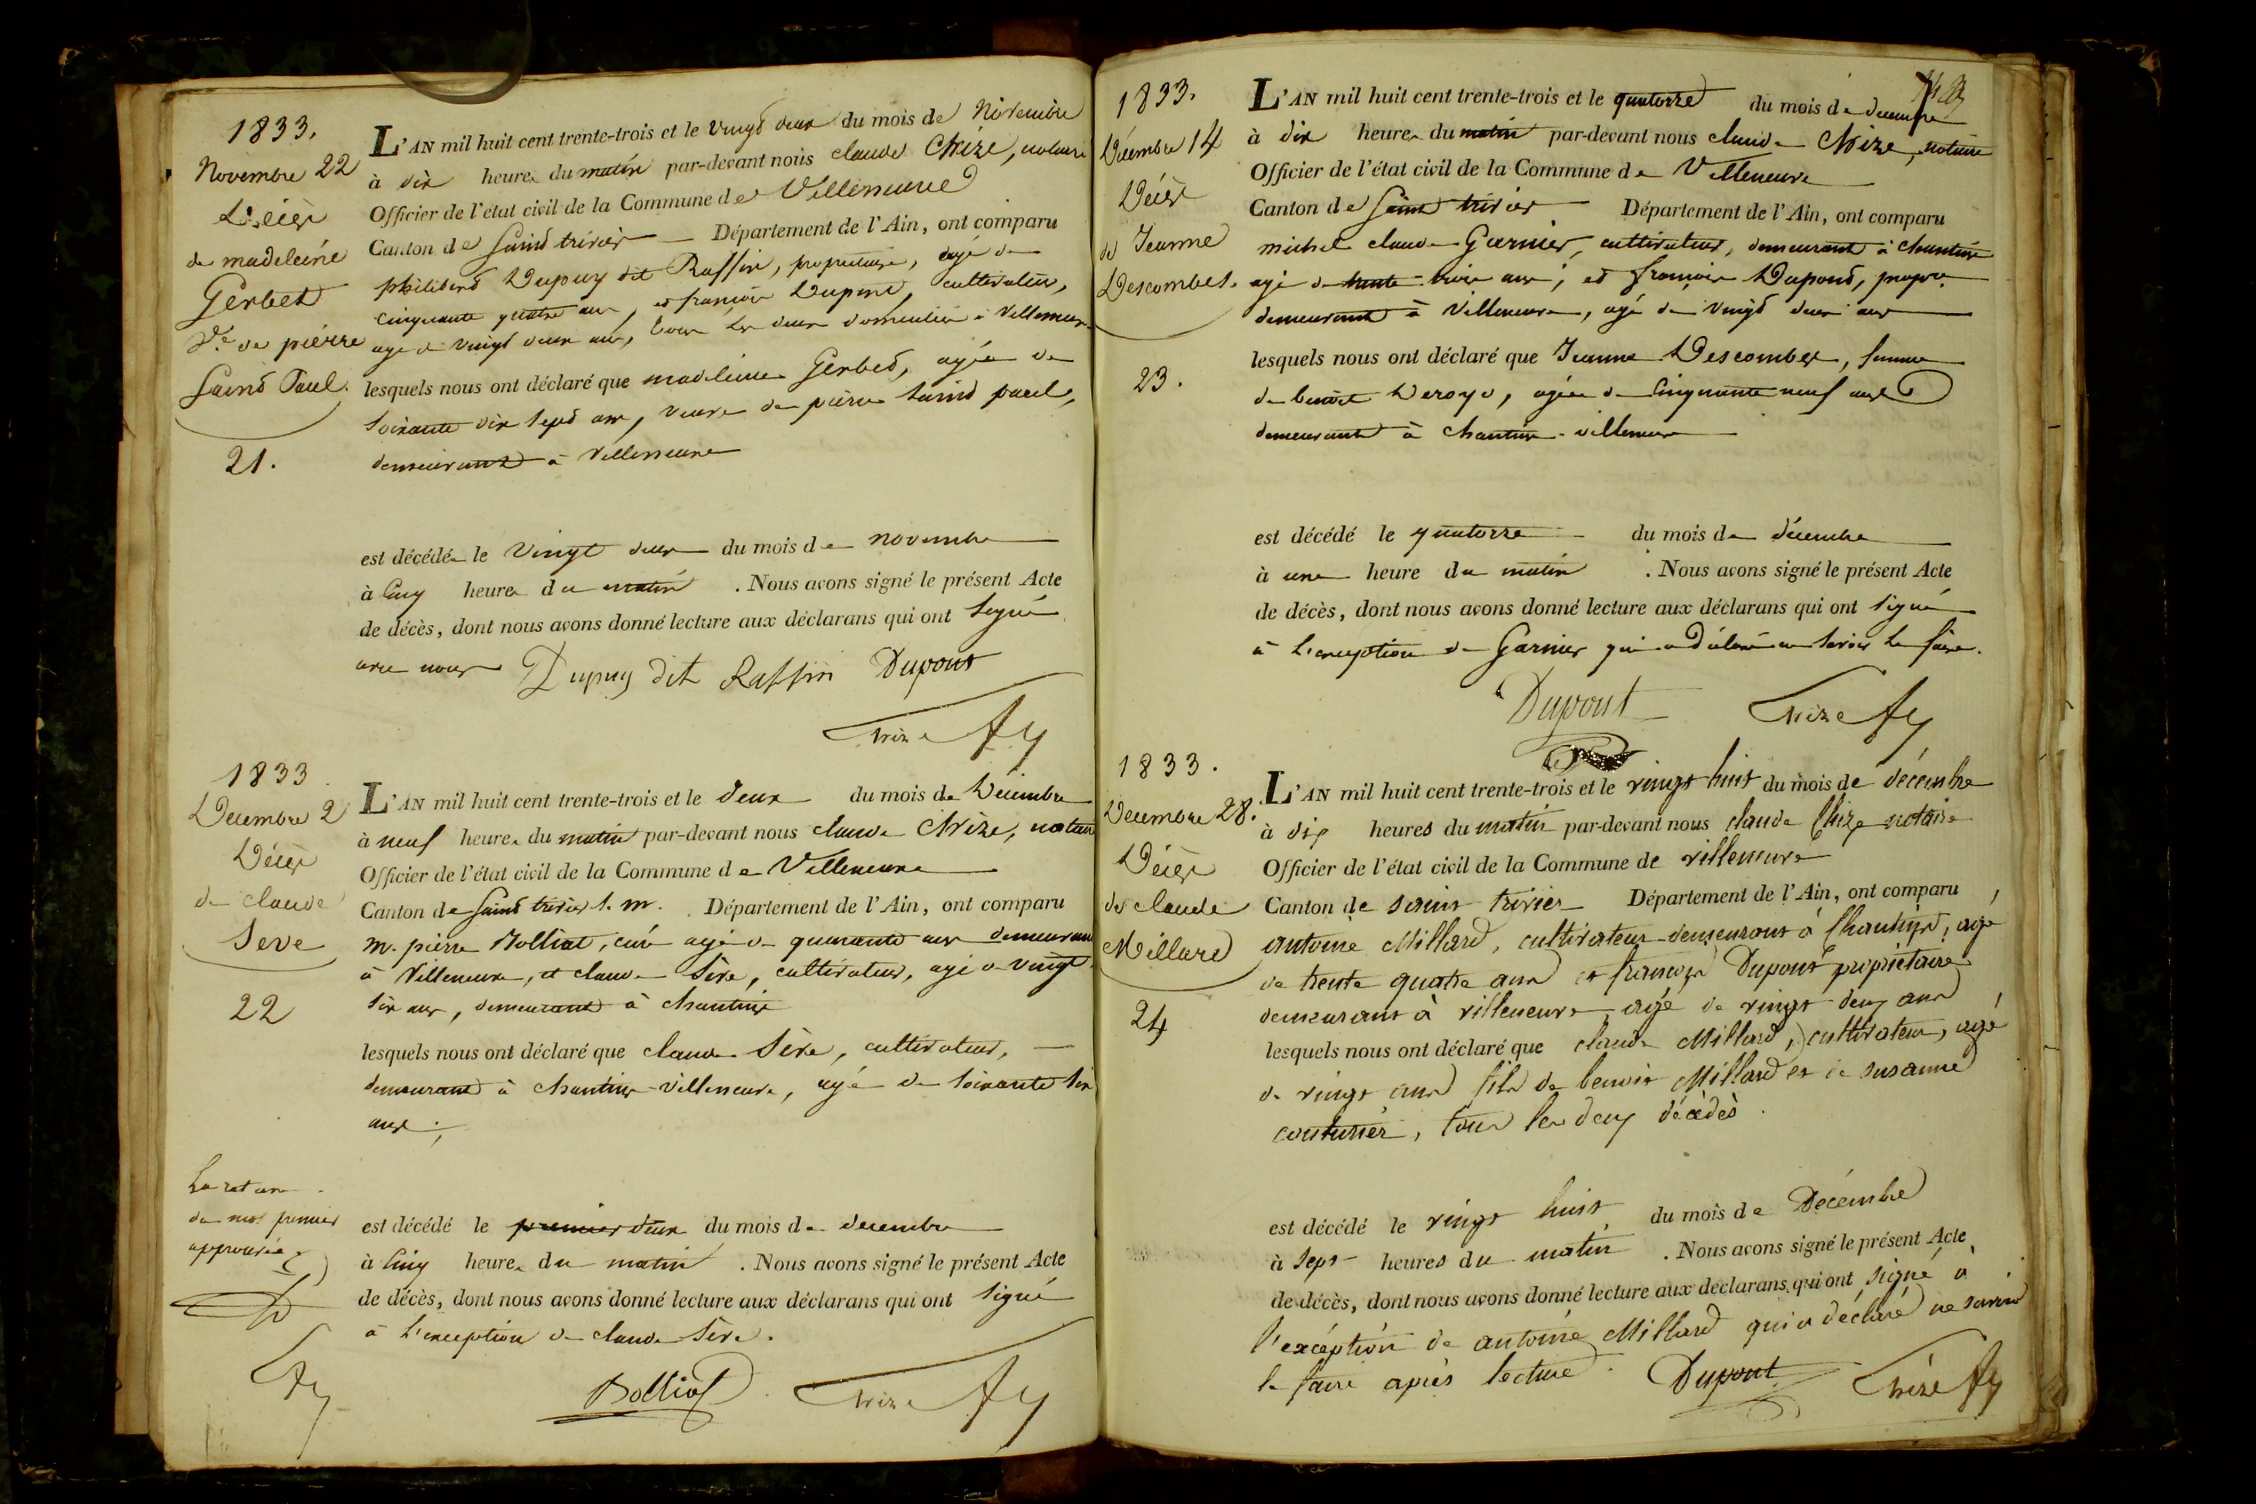 1833.
Novembre 22
Décès
de madeleine
Gerbet
Ve. de piérre
Saint Paul.
21.
L'AN mil huit cent trente-trois et le vingt deux du mois de Novembre
à dix heures du matin par-devant nous claude Chize, notaire
Officier de l'état civil de la Commune de Villeneuve
Canton de Saint trivier Département de l'Ain, ont comparu
philibert Dupuy dit Raffin, propriétaire, agé de
cinquante quatre ans, et françois Dupont, cultivateur,
agé de vingt deux ans, tous les deux domiciliés à Villeneuve
lesquels nous ont déclaré que madeleine Gerbet, agée de
soixante dix sept ans, veuve de piérre Saint paul,
demeurant à Villeneuve
est décédée le vingt deux du mois de novembre
à cinq heures du matin. Nous avons signé le présent Acte
de décès, dont nous avons donné lecture aux déclarans qui ont signé
avec nous Dupuy dit Raffin Dupont
Chize
1833
Décembre 2
Décès
de claude
Seve
22
L'AN mil huit cent trente-trois et le deux du mois de Décembre
à neuf heures du matin par-devant nous claude Chize, notaire
Officier de l'état civil de la Commune de Villeneuve
Canton de Saint trivier s. m. Département de l'Ain, ont comparu
m. piérre Bolliat, curé agé de quarante ans demeurant
à Villeneuve, et claude Sève, cultivateur, agé de vingt
six ans, demeurant à chantins
lesquels nous ont déclaré que claude Sève, cultivateur,
demeurant à chantins-villeneuve, agé de soixante six
ans;
La rature
du mot premier
approuvée
est décédé le premier deux du mois de decembre
à cinq heures du matin. Nous avons signé le présent Acte
de décès, dont nous avons donné lecture aux déclarans qui ont signé
à l'exception de claude Sève.
Bolliat Chize
1833.
Décembre 14
Décès
de Jeanne
Descombes.
23.
L'AN mil huit cent trente-trois et le quatorze du mois de decembre
à dix heures du matin par-devant nous claude Chize, notaire
Officier de l'état civil de la Commune de Villeneuve
Canton de Saint trivier Département de l'Ain, ont comparu
michel claude Garnier, cultivateur, demeurant à chantins
agé de trente trois ans; et françois Dupont, propre.
demeurant à Villeneuve, agé de vingt deux ans
lesquels nous ont déclaré que Jeanne Descombes, femme
de benoît Deroyo, agée de cinquante neuf ans
demeurant à chantins-villeneuve
est décédé le quatorze du mois de décembre
à une heure du matin. Nous avons signé le présent Acte
de décès, dont nous avons donné lecture aux déclarans qui ont signé
à l'exception de Garnier qui a déclaré ne savoir le faire.
Dupont Chize
1833.
Decembre 28.
Décès
de claude
Millard
24
L'AN mil huit cent trente-trois et le vingt huit du mois de décembre
à dix heures du matin par-devant nous claude Chize notaire
Officier de l'état civil de la Commune de villeneuve
Canton de saint trivier Département de l'Ain, ont comparu
antoine Millard, cultivateur demeurant à Chantins, agé
de trente quatre ans et françois Dupont propriétaire
demeurant à villeneuve agé de vingt deux ans
lesquels nous ont déclaré que claude Millard, cultivateur, agé
de vingt ans fils de benoit Millard et de susanne
couturier, tous les deux décédés
est décédé le vingt huit du mois de Décembre
à sept heures du matin. Nous avons signé le présent Acte
de décès, dont nous avons donné lecture aux déclarans qui ont signé à
l'excéption de antoine Millard qui a déclaré ne savoir
le faire après lecture. Dupont Chize